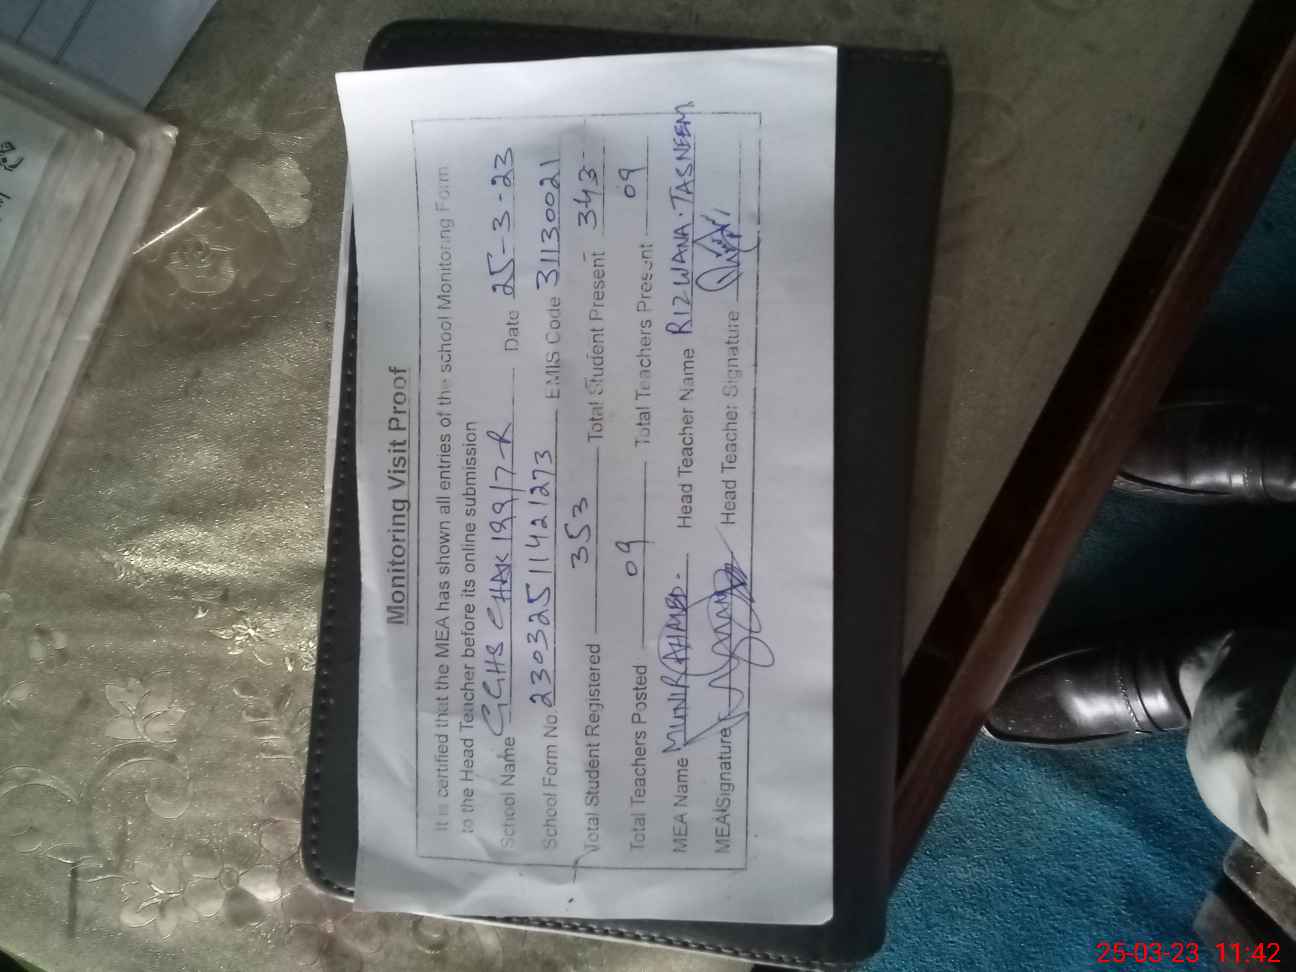 Monitoring Visit Proof
It is certified that the MEA has shown all entries of the school Monitoring Form
to the Head Teacher before its online submission
School Name GGHS CHAK 199/7-R Date 25-3-23
School Form No. 23032511421273 EMIS Code 31130021
Total Student Registered 353 Total Student Present 343
Total Teachers Posted 09 Total Teachers Present 09
MEA Name MUNIR AHMED. Head Teacher Name RIZWANA.TASNEEM
MEA Signature Head Teacher Signature
25-03-23 11:42